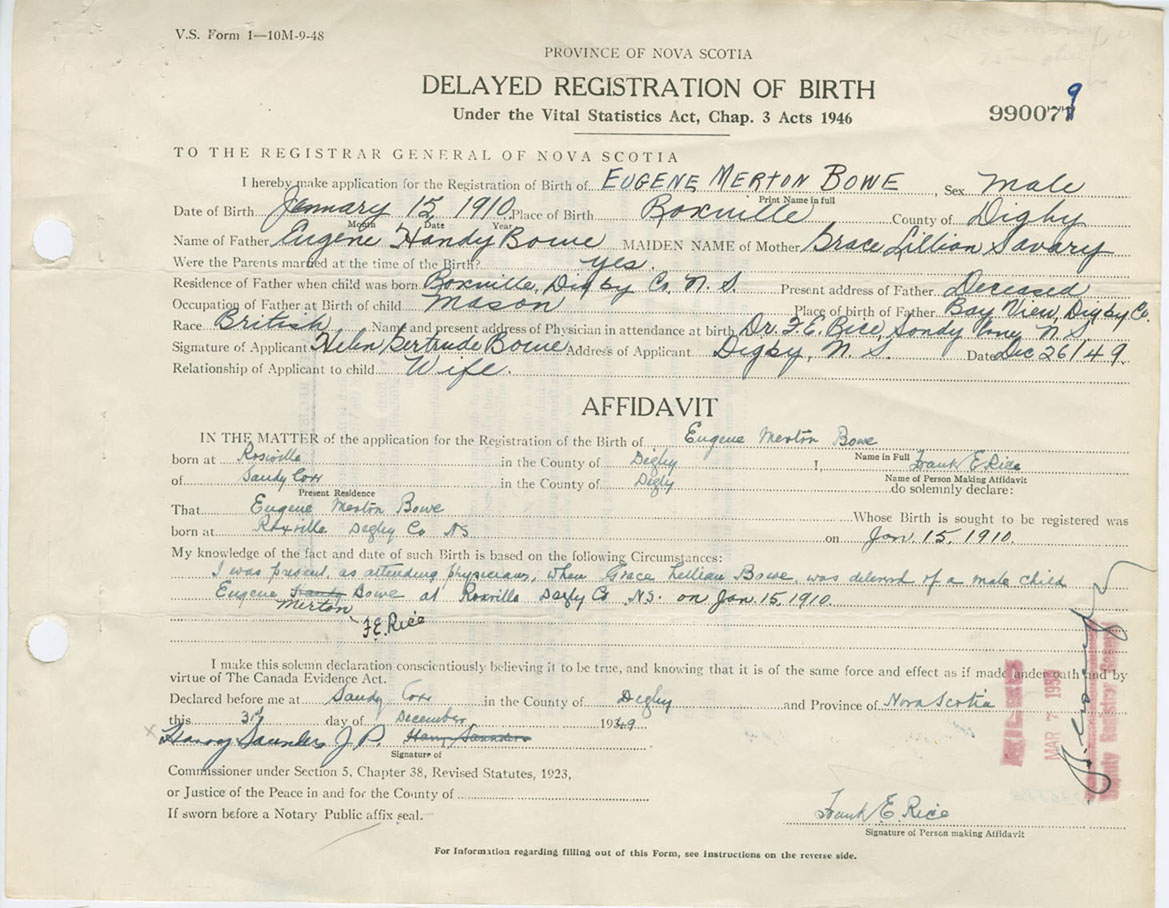 V.S. Form 1—10M-9-48
PROVINCE OF NOVA SCOTIA
DELAYED REGISTRATION OF BIRTH
Under the Vital Statistics Act, Chap. 3 Acts 1946
990079
TO THE REGISTRAR GENERAL OF NOVA SCOTIA
I hereby make application for the Registration of Birth of EUGENE MERTON BOWE, Sex Male
Print Name in full
Date of Birth January 15, 1910. Place of Birth Roxville County of Digby
Month Date Year
Name of Father Eugene Handy Bowe MAIDEN NAME of Mother Grace Lillian Savary
Were the Parents married at the time of the Birth? yes.
Residence of Father when child was born Roxville, Digby Co. N. S. Present address of Father Deceased
Occupation of Father at Birth of child Mason Place of birth of Father Bay View, Digby Co.
Race British Name and present address of Physician in attendance at birth Dr. F. E. Rice, Sandy Cove N. S.
Signature of Applicant Helen Gertrude Bowe Address of Applicant Digby, N. S. Date Dec 26/49.
Relationship of Applicant to child Wife.
AFFIDAVIT
IN THE MATTER of the application for the Registration of the Birth of Eugene Merton Bowe
Name in Full
born at Roxville in the County of Digby I, Frank E Rice
Name of Person Making Affidavit
of Sandy Cove in the County of Digby do solemnly declare:
Present Residence
That Eugene Merton Bowe Whose Birth is sought to be registered was
born at Roxville Digby Co NS on Jan. 15, 1910.
My knowledge of the fact and date of such Birth is based on the following Circumstances:
I was present, as attending physician, when Grace Lillian Bowe, was delivered of a male child
Eugene Handy Bowe at Roxville Digby Co N.S. on Jan. 15, 1910.
Merton
F.E. Rice
I make this solemn declaration conscientiously believing it to be true, and knowing that it is of the same force and effect as if made under oath and by
virtue of The Canada Evidence Act.
Declared before me at Sandy Cove in the County of Digby and Province of Nova Scotia
this 31st day of December 1949
Harry Saunders J. P. Harry Saunders
Signature of
Commissioner under Section 5, Chapter 38, Revised Statutes, 1923,
or Justice of the Peace in and for the County of
If sworn before a Notary Public affix seal.
Frank E. Rice
Signature of Person making Affidavit
For Information regarding filling out of this Form, see instructions on the reverse side.
MAR 7 1950
Deputy Registrar General